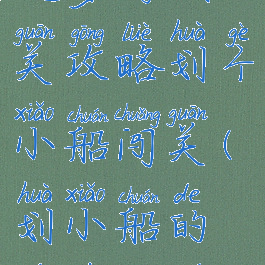 guān gōng lüè huà gè
关攻略划个
xiǎo chuán chuǎng guān
小船闯关(
huà xiǎo chuán de
划小船的